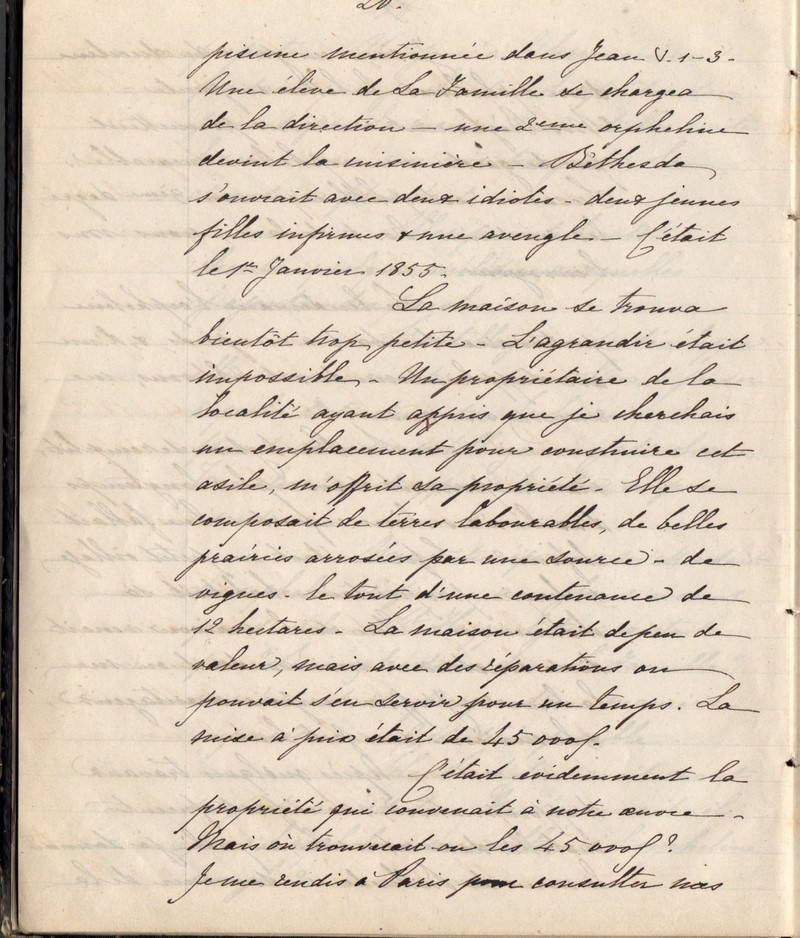 20.
piscine mentionnée dans Jean V. 1-3.
Une élève de La Famille se chargea
de la direction — une 2eme orpheline
devint la cuisinière — Béthesda
s'ouvrait avec deux idiotes - deux jeunes
filles infirmes & une aveugle — C'était
le 1er Janvier 1855.
La maison se trouva
bientôt trop petite - L'agrandir était
impossible - Un propriétaire de la
localité ayant appris que je cherchais
un emplacement pour construire cet
asile, m'offrit sa propriété - Elle se
composait de terres labourables, de belles
prairies arrosées par une source - de
vignes - le tout d'une contenance de
12 hectares - La maison était de peu de
valeur, mais avec des réparations on
pouvait s'en servir pour un temps. La
mise à prix était de 45 000f.
C'était évidemment la
propriété qui convenait à notre œuvre -
Mais où trouverait on les 45 000f?
Je me rendis à Paris pour consulter nos